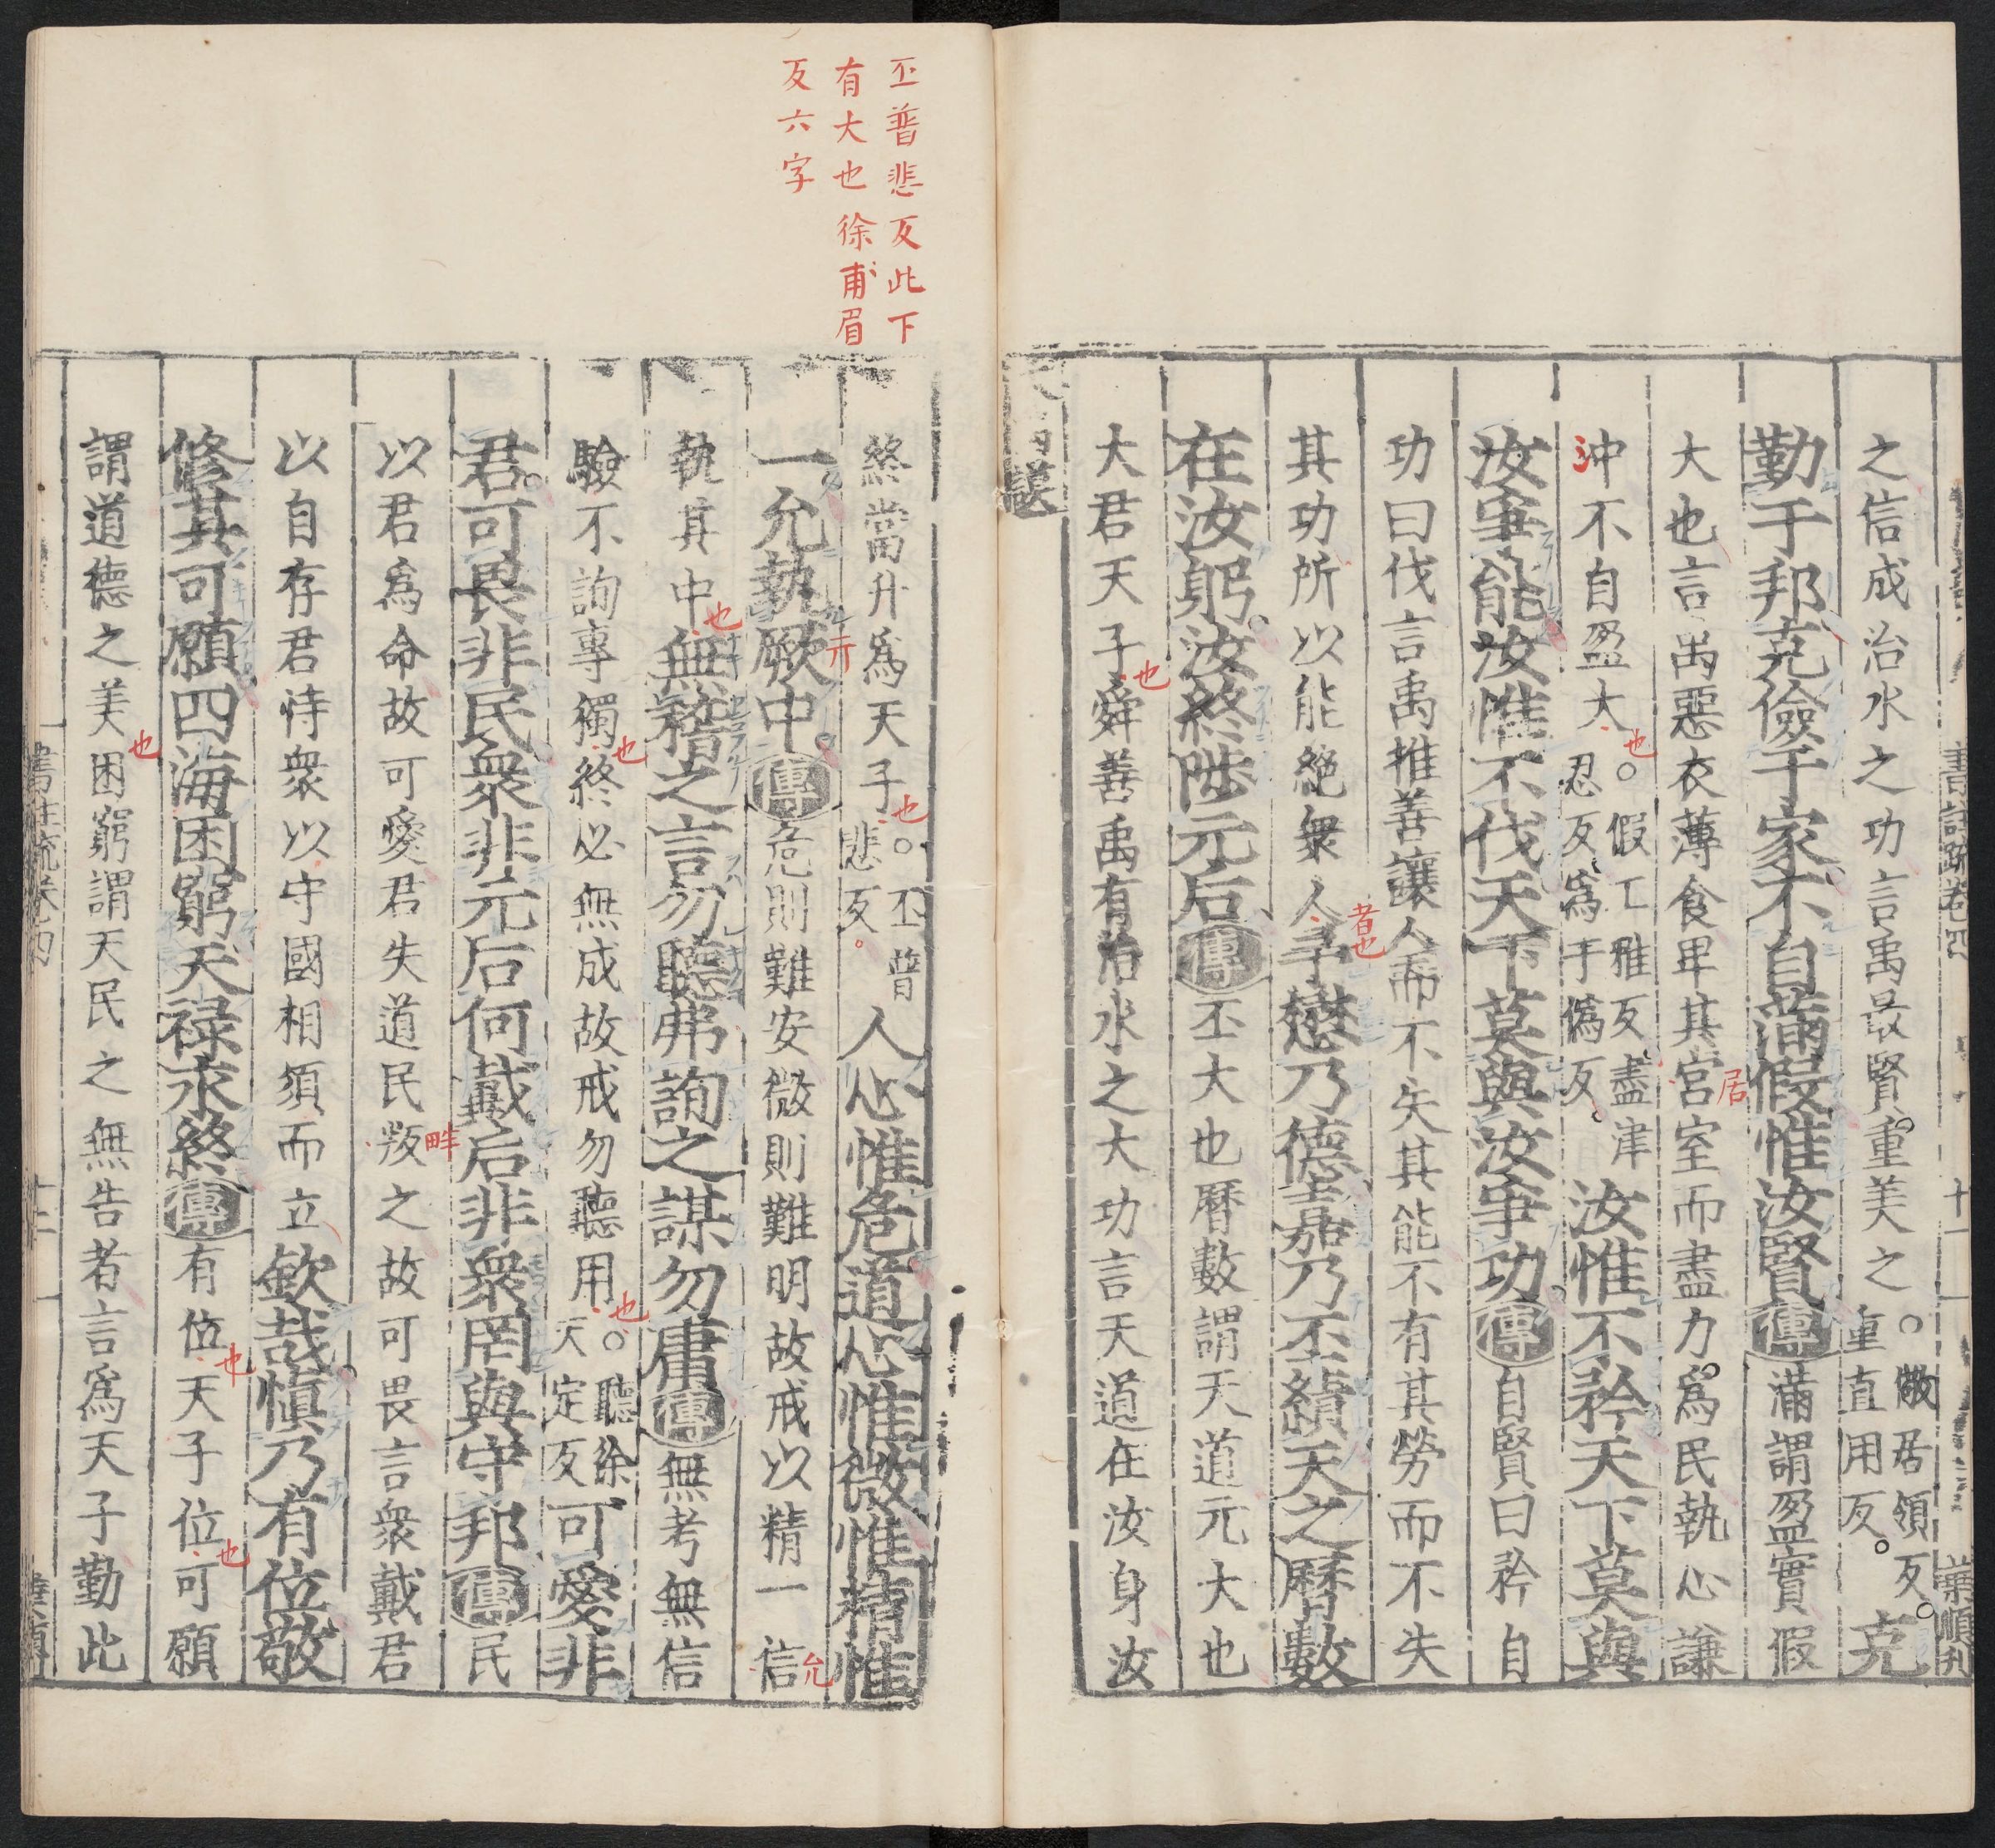 之信成治水之功言禹最賢重美之○儆居領反重直用反克
勤于邦克儉于家不自滿假惟汝賢傳滿謂盈實假
大也言禹惡衣薄食卑其宮室而盡力為民執心謙
居
沖不自盈大○假工雅反盡津忍反為于偽反汝惟不矜天下莫與
也
汝爭能汝惟不伐天下莫與汝爭功傳自賢曰矜自
功曰伐言禹推善讓人而不失其能不有其勞而不失
其功所以能絕衆人予懋乃德嘉乃丕績天之曆數
者也
在汝躬汝終陟元后傳丕大也曆數謂天道元大也
大君天子舜善禹有治水之大功言天道在汝身汝
也
書註疏卷四
十一
葉順刊
丕普悲反此下
有大也徐甫眉
反六字
終當升爲天子○丕普悲反人心惟危道心惟微惟精惟
也
一允執厥中傳危則難安微則難明故戒以精一信
亓
允
執其中無稽之言勿聽弗詢之謀勿庸傳無考無信
也
驗不詢專獨終必無成故戒勿聽用○聽徐天定反可愛非
也
也
君可畏非民衆非元后何戴后非衆罔與守邦傳民
以君爲命故可愛君失道民叛之故可畏言衆戴君
畔
以自存君恃衆以守國相須而立欽哉愼乃有位敬
修其可願四海困窮天祿永終傳有位天子位可願
也
也
謂道德之美困窮謂天民之無告者言爲天子勤此
也
書註疏卷四
十二